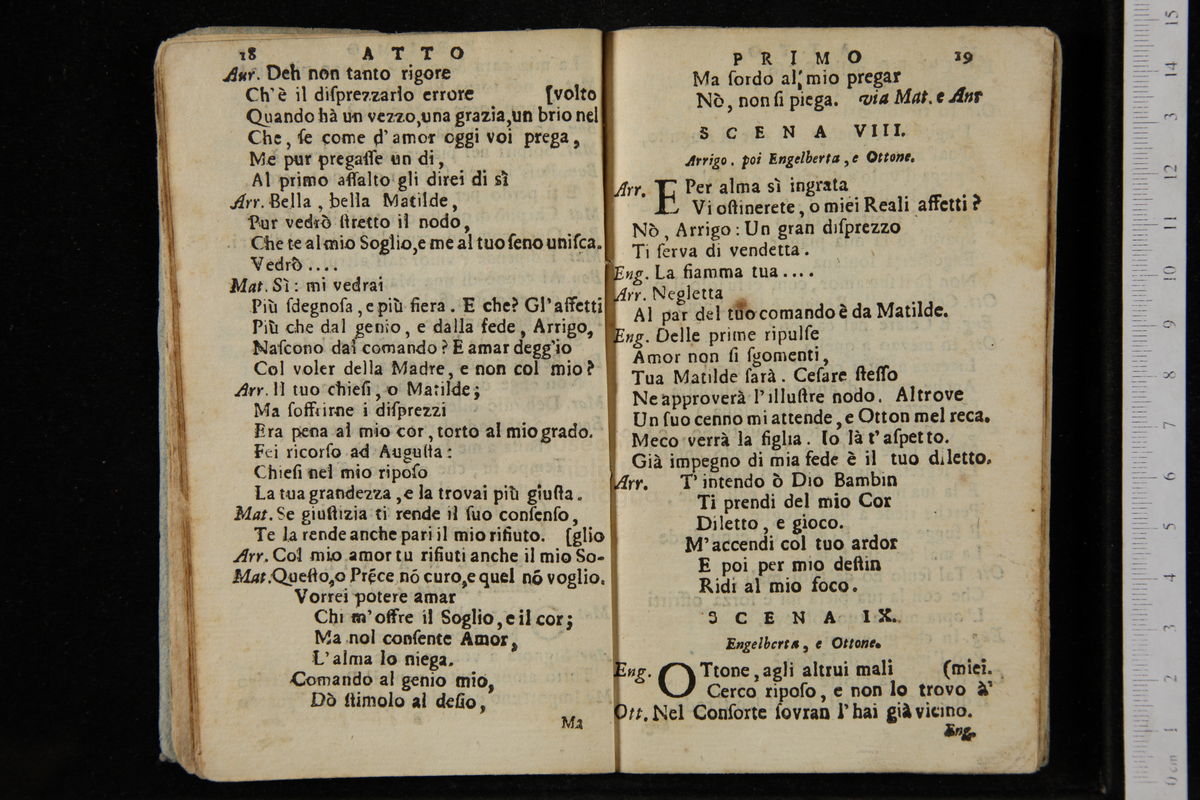 18 ATTO
Aur. Deh non tanto rigore
Ch'è il diſprezzarlo errore [volto
Quando hà un vezzo,una grazia,un brio nel
Che, ſe come d'amor oggi voi prega,
Me pur pregaſſe un dì,
Al primo aſſalto gli direi di sì
Arr. Bella, bella Matilde,
Pur vedrò ſtretto il nodo,
Che te al mio Soglio,e me al tuo ſeno uniſca.
Vedrò....
Mat. Sì: mi vedrai
Più ſdegnoſa, e più fiera. E che? Gl'affetti
Più che dal genio, e dalla fede, Arrigo,
Naſcono dal comando? E amar degg'io
Col voler della Madre, e non col mio?
Arr. Il tuo chieſi, o Matilde;
Ma ſoffrirne i diſprezzi
Era pena al mio cor, torto al mio grado.
Fei ricorſo ad Auguſta:
Chieſi nel mio ripoſo
La tua grandezza, e la trovai più giuſta.
Mat. Se giuſtizia ti rende il ſuo conſenſo,
Te la rende anche pari il mio rifiuto. [glio
Arr. Col mio amor tu rifiuti anche il mio So-
Mat. Queſto,o Prẽce nõ curo,e quel nõ voglio.
Vorrei potere amar
Chi m'offre il Soglio, e il cor;
Ma nol conſente Amor,
L'alma lo niega.
Comando al genio mio,
Dò ſtimolo al deſio,
Ma
PRIMO 19
Ma ſordo al mio pregar
Nò, non ſi piega. via Mat. e Aur
SCENA VIII.
Arrigo. poi Engelberta, e Ottone.
Arr. E Per alma sì ingrata
Vi oſtinerete, o miei Reali affetti?
Nò, Arrigo: Un gran diſprezzo
Ti ſerva di vendetta.
Eng. La fiamma tua....
Arr. Negletta
Al par del tuo comando è da Matilde.
Eng. Delle prime ripulſe
Amor non ſi ſgomenti,
Tua Matilde ſarà. Ceſare ſteſſo
Ne approverà l'illuſtre nodo. Altrove
Un ſuo cenno mi attende, e Otton mel reca.
Meco verrà la figlia. Io là t'aſpetto.
Già impegno di mia fede è il tuo diletto.
Arr. T'intendo ò Dio Bambin
Ti prendi del mio Cor
Diletto, e gioco.
M'accendi col tuo ardor
E poi per mio deſtin
Ridi al mio foco.
SCENA IX.
Engelberta, e Ottone.
Eng. OTtone, agli altrui mali (miei.
Cerco ripoſo, e non lo trovo à'
Ott. Nel Conſorte ſovran l'hai già vicino.
Eng.
15
14
13
12
11
10
9
8
7
6
5
4
3
2
1
0 cm